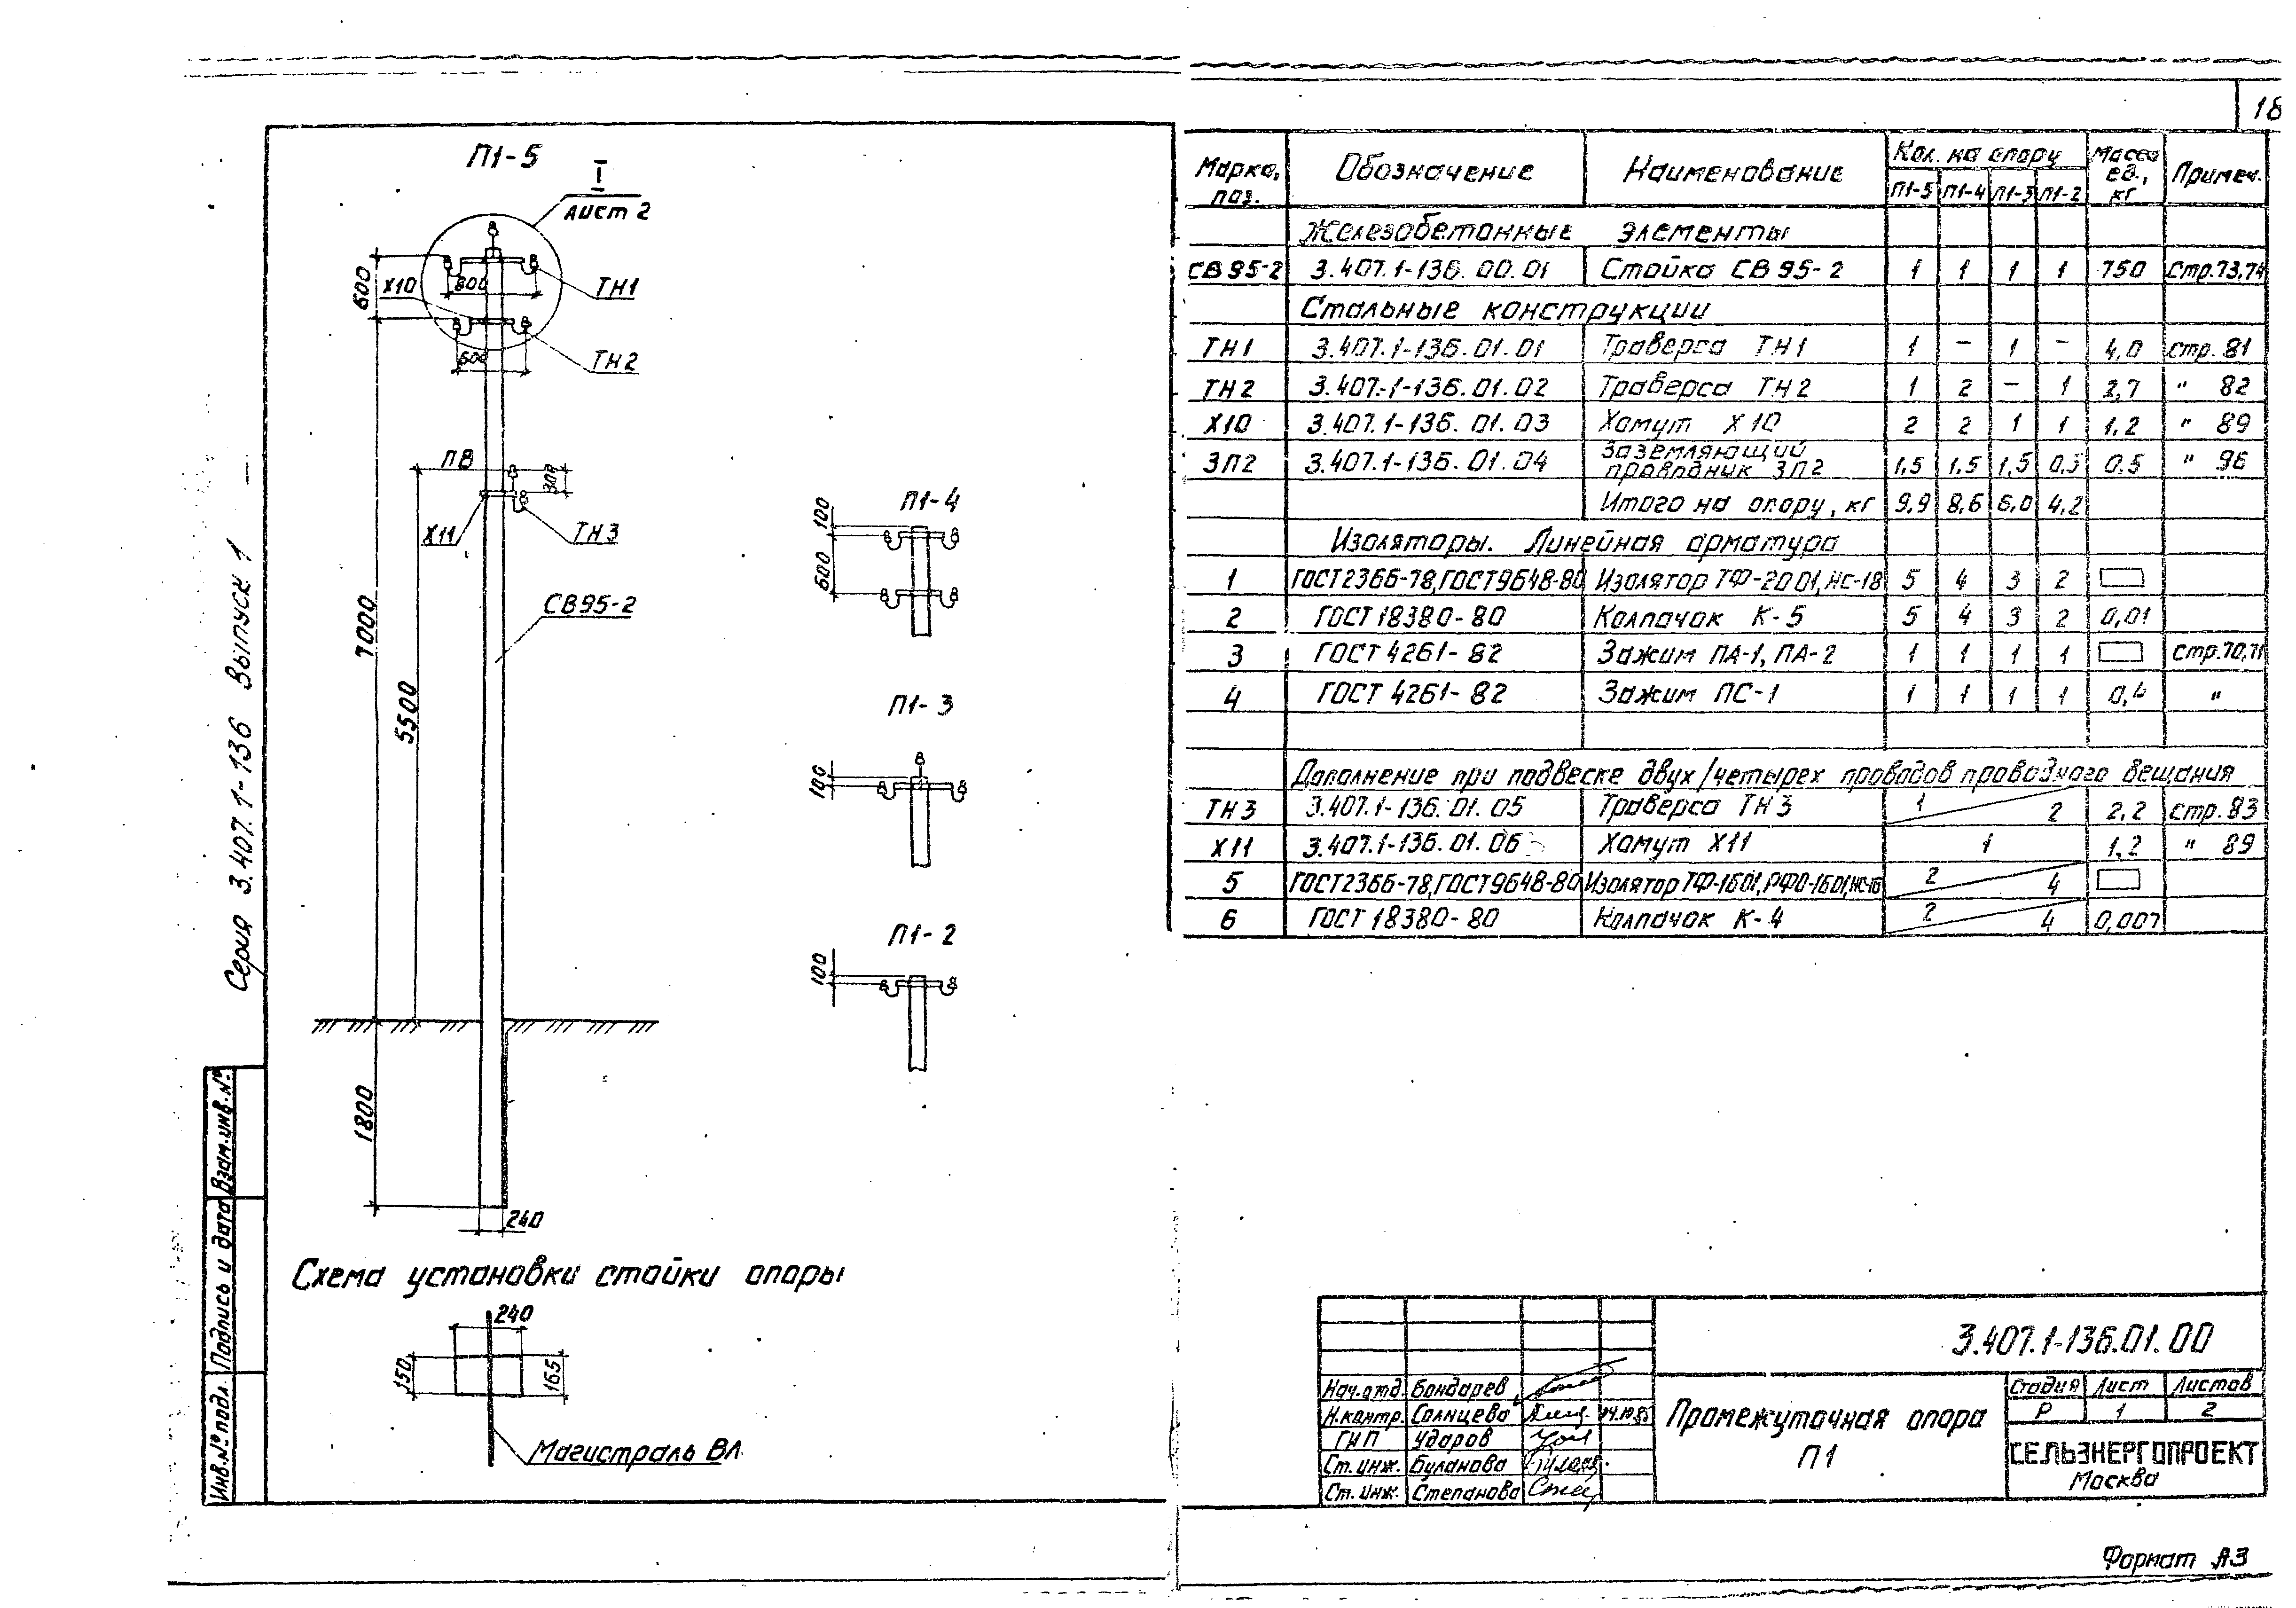 18
П1-5
I
Лист 2
600
Х10
800
ТН1
600
ТН2
ПВ
300
Х11
ТН3
СВ95-2
7000
5500
1800
240
П1-4
100
600
П1-3
100
П1-2
100
Схема установки стойки опоры
240
150
165
Магистраль ВЛ
Серия 3.407.1-136 Выпуск 1
Инв.№подл. Подпись и дата Взам.инв.№
Марка, поз. Обозначение Наименование Кол. на опору Масса ед., кг Примеч.
П1-5 П1-4 П1-3 П1-2
Железобетонные элементы
СВ95-2 3.407.1-136.00.01 Стойка СВ95-2 1 1 1 1 750 Стр.73,74
Стальные конструкции
ТН1 3.407.1-136.01.01 Траверса ТН1 1 – 1 – 4,0 Стр. 81
ТН2 3.407.1-136.01.02 Траверса ТН2 1 2 – 1 2,7 " 82
Х10 3.407.1-136.01.03 Хомут Х10 2 2 1 1 1,2 " 89
ЗП2 3.407.1-136.01.04 Заземляющий проводник ЗП2 1,5 1,5 1,5 0,5 " 96
Итого на опору, кг 9,9 8,6 6,0 4,2
Изоляторы. Линейная арматура
1 ГОСТ2366-78,ГОСТ9648-80 Изолятор ТФ-2001,НС-18 5 4 3 2
2 ГОСТ 18380-80 Колпачок К-5 5 4 3 2 0,01
3 ГОСТ 4261-82 Зажим ПА-1, ПА-2 1 1 1 1 Стр.70,71
4 ГОСТ 4261-82 Зажим ПС-1 1 1 1 1 "
Дополнение при подвеске двух/четырех проводов проводного вещания
ТН3 3.407.1-136.01.05 Траверса ТН3 1 2 2,2 Стр.83
Х11 3.407.1-136.01.06 Хомут Х11 1 1,2 " 89
5 ГОСТ2366-78,ГОСТ9648-80 Изолятор ТФ-1601,РФО-1601, 2 4
6 ГОСТ 18380-80 Колпачок К-4 2 4 0,007
3.407.1-136.01.00
Нач.отд. Бондарев
Н.контр. Солнцева
ГИП Ударов
Ст.инж. Буланова
Ст.инж. Степанова
Промежуточная опора
П1
Стадия Лист Листов
Р 1 2
СЕЛЬЭНЕРГОПРОЕКТ
Москва
Формат А3